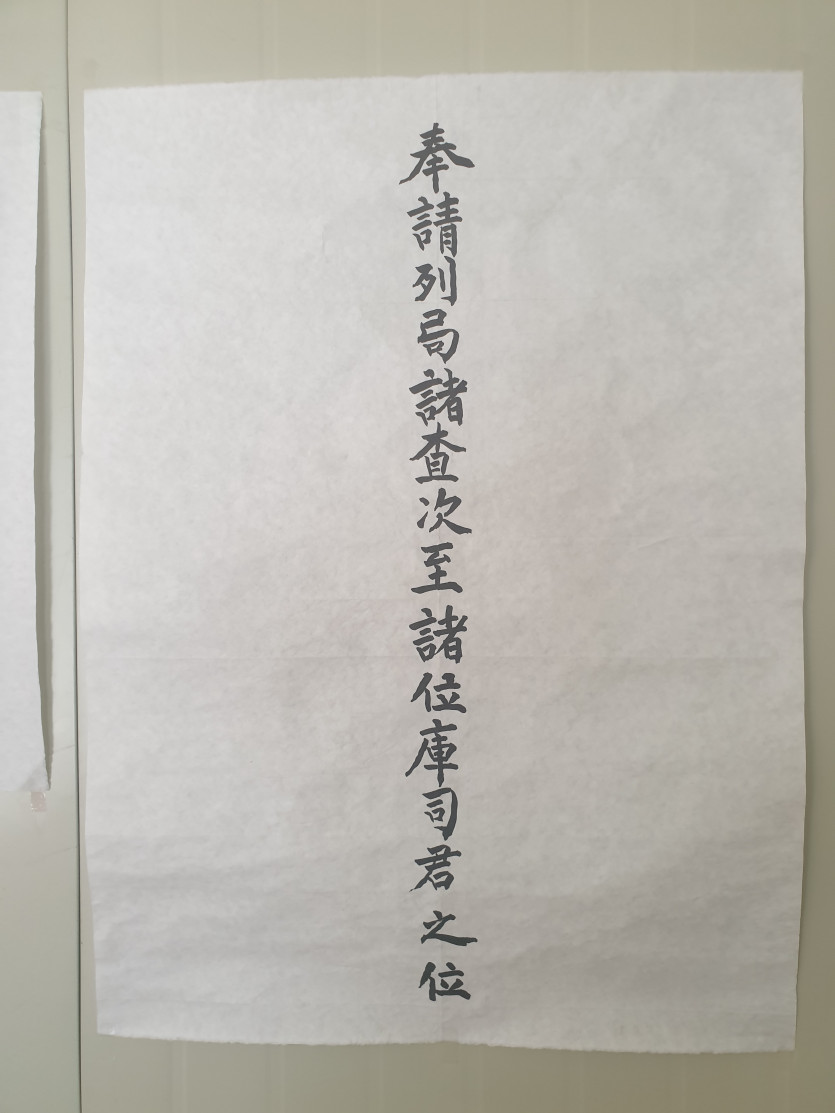 奉請列局諸查次至諸位庫司君之位